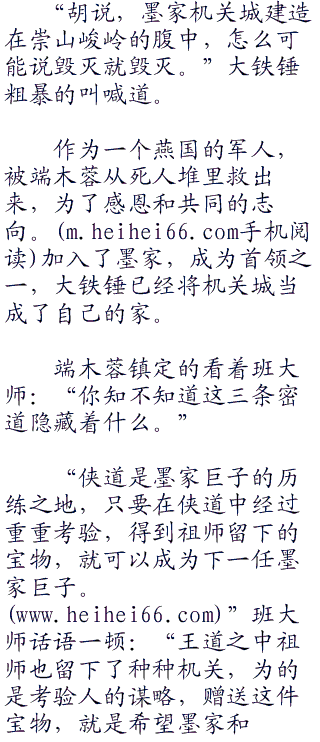 “胡说，墨家机关城建造
在崇山峻岭的腹中，怎么可
能说毁灭就毁灭。”大铁锤
粗暴的叫喊道。
作为一个燕国的军人，
被端木蓉从死人堆里救出
来，为了感恩和共同的志
向。(m.heihei66.com手机阅
读)加入了墨家，成为首领之
一，大铁锤已经将机关城当
成了自己的家。
端木蓉镇定的看着班大
师：“你知不知道这三条密
道隐藏着什么。”
“侠道是墨家巨子的历
练之地，只要在侠道中经过
重重考验，得到祖师留下的
宝物，就可以成为下一任墨
家巨子。
(www.heihei66.com)”班大
师话语一顿：“王道之中祖
师也留下了种种机关，为的
是考验人的谋略，赠送这件
宝物，就是希望墨家和